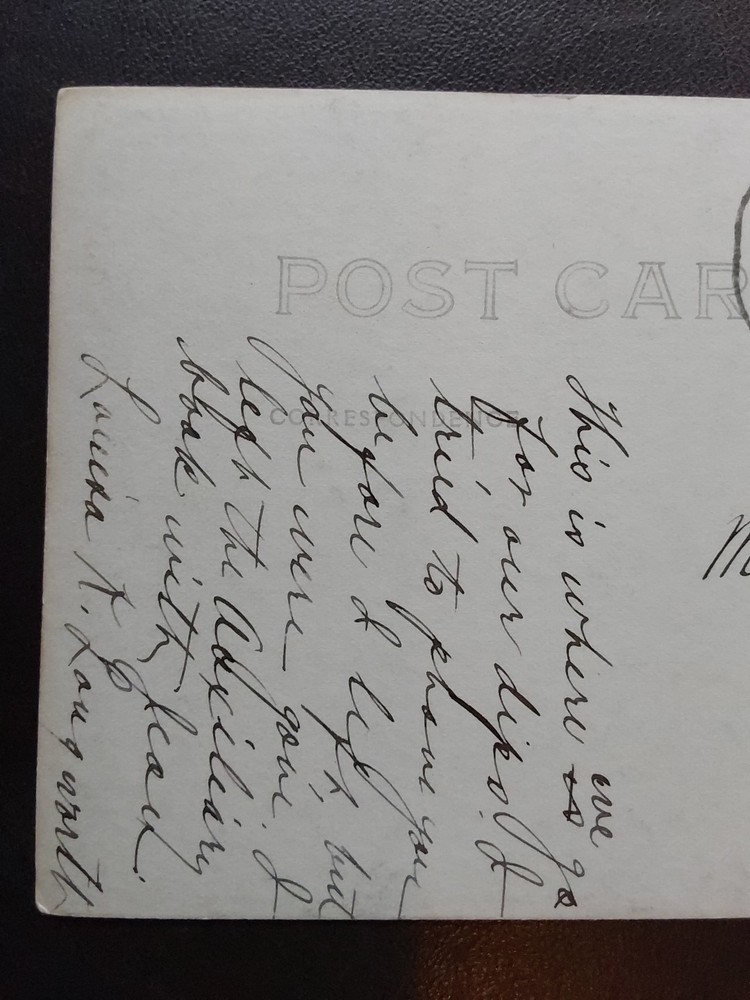 POST CAR
CORRESPONDENCE
This is where we go
for our dips. I
tried to phone you
before I left but
you were gone. I
left the Auxiliary
book with Lead.
Louisa K. Longworth
M